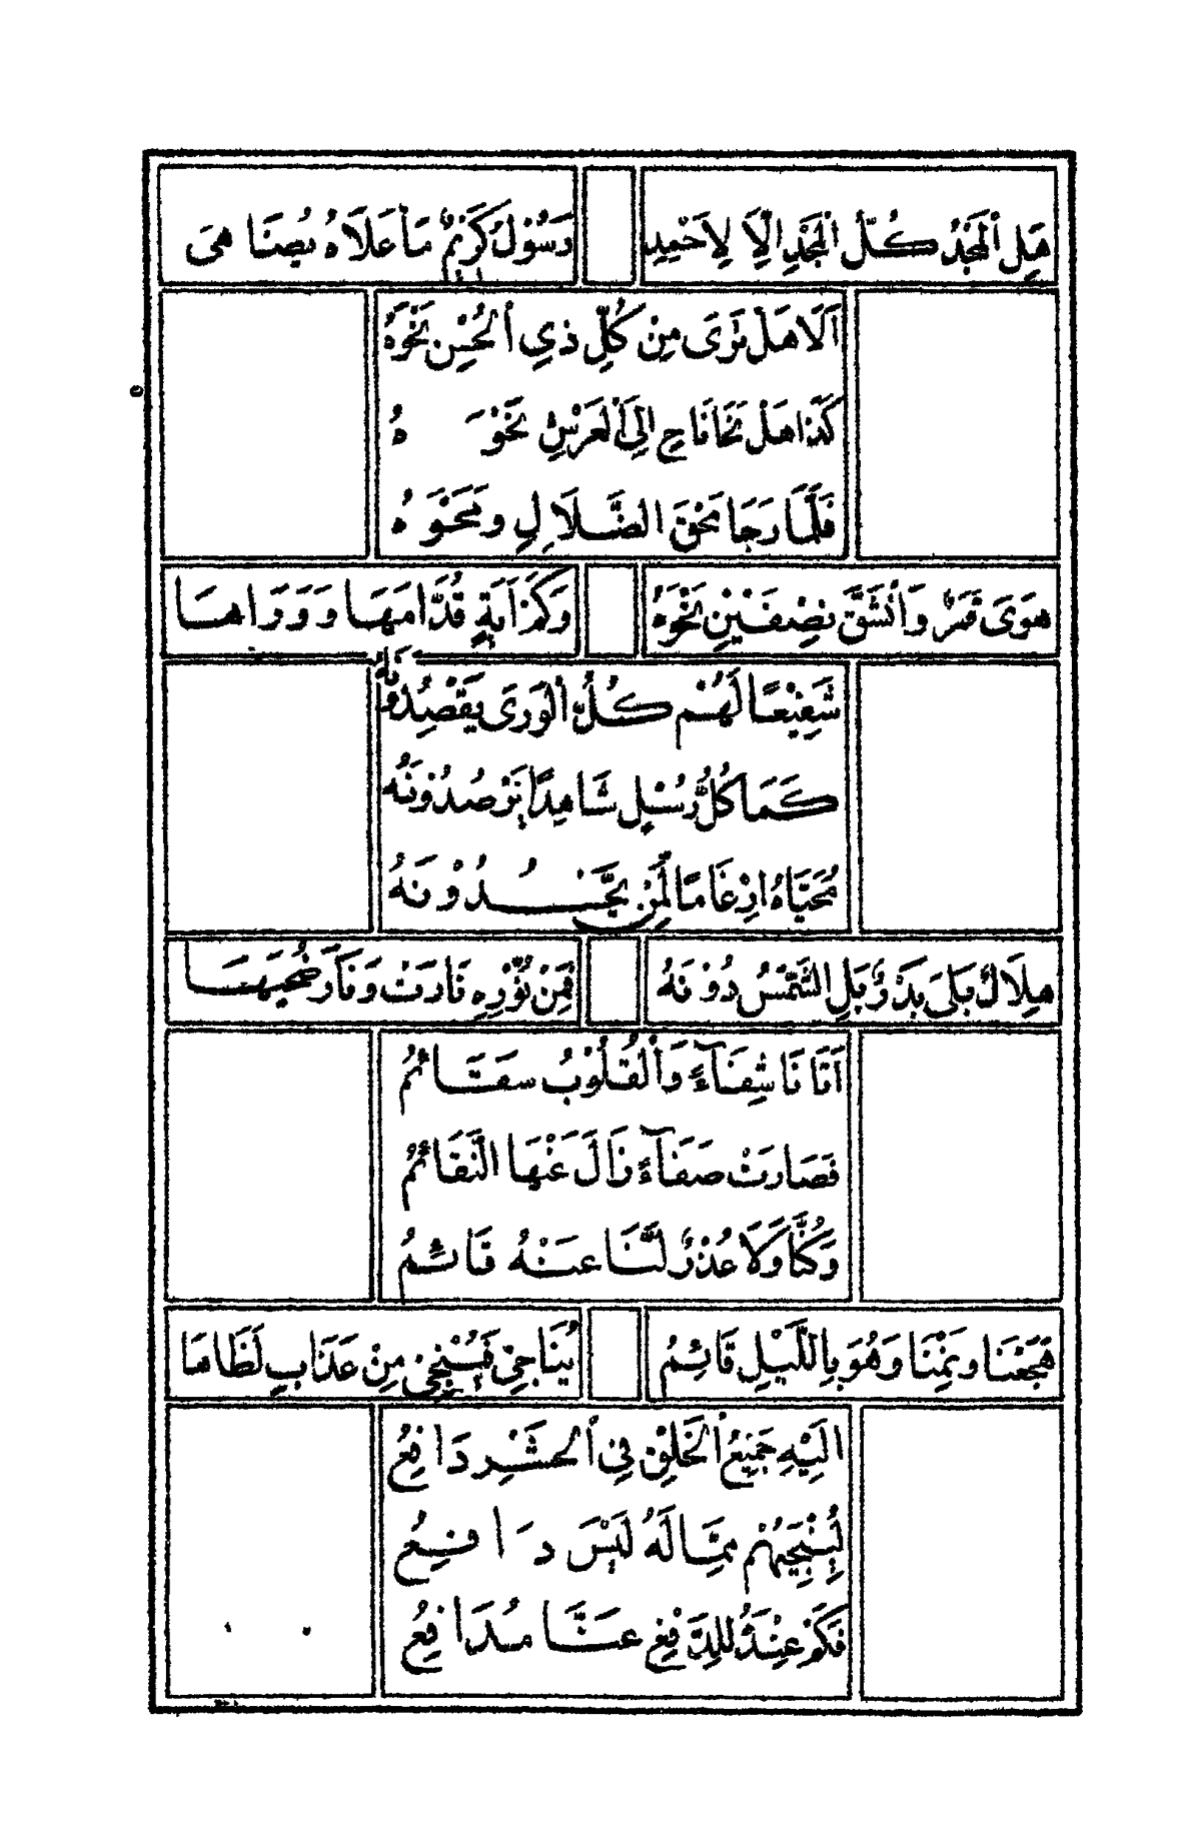 هَلِ ٱلْمَجْدُ كُلُّ ٱلْمَجْدِ اِلَّا لِاَحْمَدٍ رَسُوْلٌ كَرَيْمٌ مَاْ عَلَاهُ يُضَاهىَ
اَلَا هَلْ تَرَى مِنْ كُلِّ ذِي ٱلْحُسْنِ نَحْوَهُ
كَذَا هَلْ نَحَا نَاجٍ اِلَى ٱلْعَرْشِ نَحْوَهُ
فَلَمَّا رَجَا مَحْقَ الضَّلَالِ وَمَحْوَهُ
هَوَى قَمَرٌ وَٱنْشَقَّ نِصْفَيْنِ نَحْوَهُ وَكَمْ اٰيَةٍ قُدَّامَهَا وَوَرَاهَا
شَفِيْعًا لَهُمْ كُلُّ ٱلْوَرَى يَقْصِدُوْنَهُ
كَمَا كُلُّ رُسْلٍ شَاهِدًا يَرْصُدُوْنَهُ
مُحَيَّاهُ اِرْغَامًا لِّمَنْ يَجْحَدُوْنَهُ
هِلَالٌ بَلَى بَدْرٌ بَلِ الشَّمْسُ دُوْنَهُ فَمِنْ نُوْرِهِ نَارَتْ وَنَارَ ضُحَيهَا
اَتَانَا شِفَآءً وَٱلْقُلُوْبُ سَقَائِمُ
فَصَارَتْ صَفَآءً زَالَ عَنْهَا النَّقَائِمُ
وَكُنَّا وَلَا عُذْرٌ لَّنَا عَنْهُ قَائِمُ
هَجَعْنَا وَنِمْنَا وَهُوَ بِاللَّيْلِ قَائِمُ يُنَاجِيْ فَيُنْجِيْ مِنْ عَذَابِ لَظَاهَا
اِلَيْهِ جَمِيْعُ ٱلْخَلْقِ فِى ٱلْحَشْرِ دَافِعُ
لِيُنْجِيَهُمْ مِمَّا لَهُ لَيْسَ دَافِعُ
فَكَمْ عِنْدَهُ لِلدَّفْعِ عَنَّا مُدَافِعُ